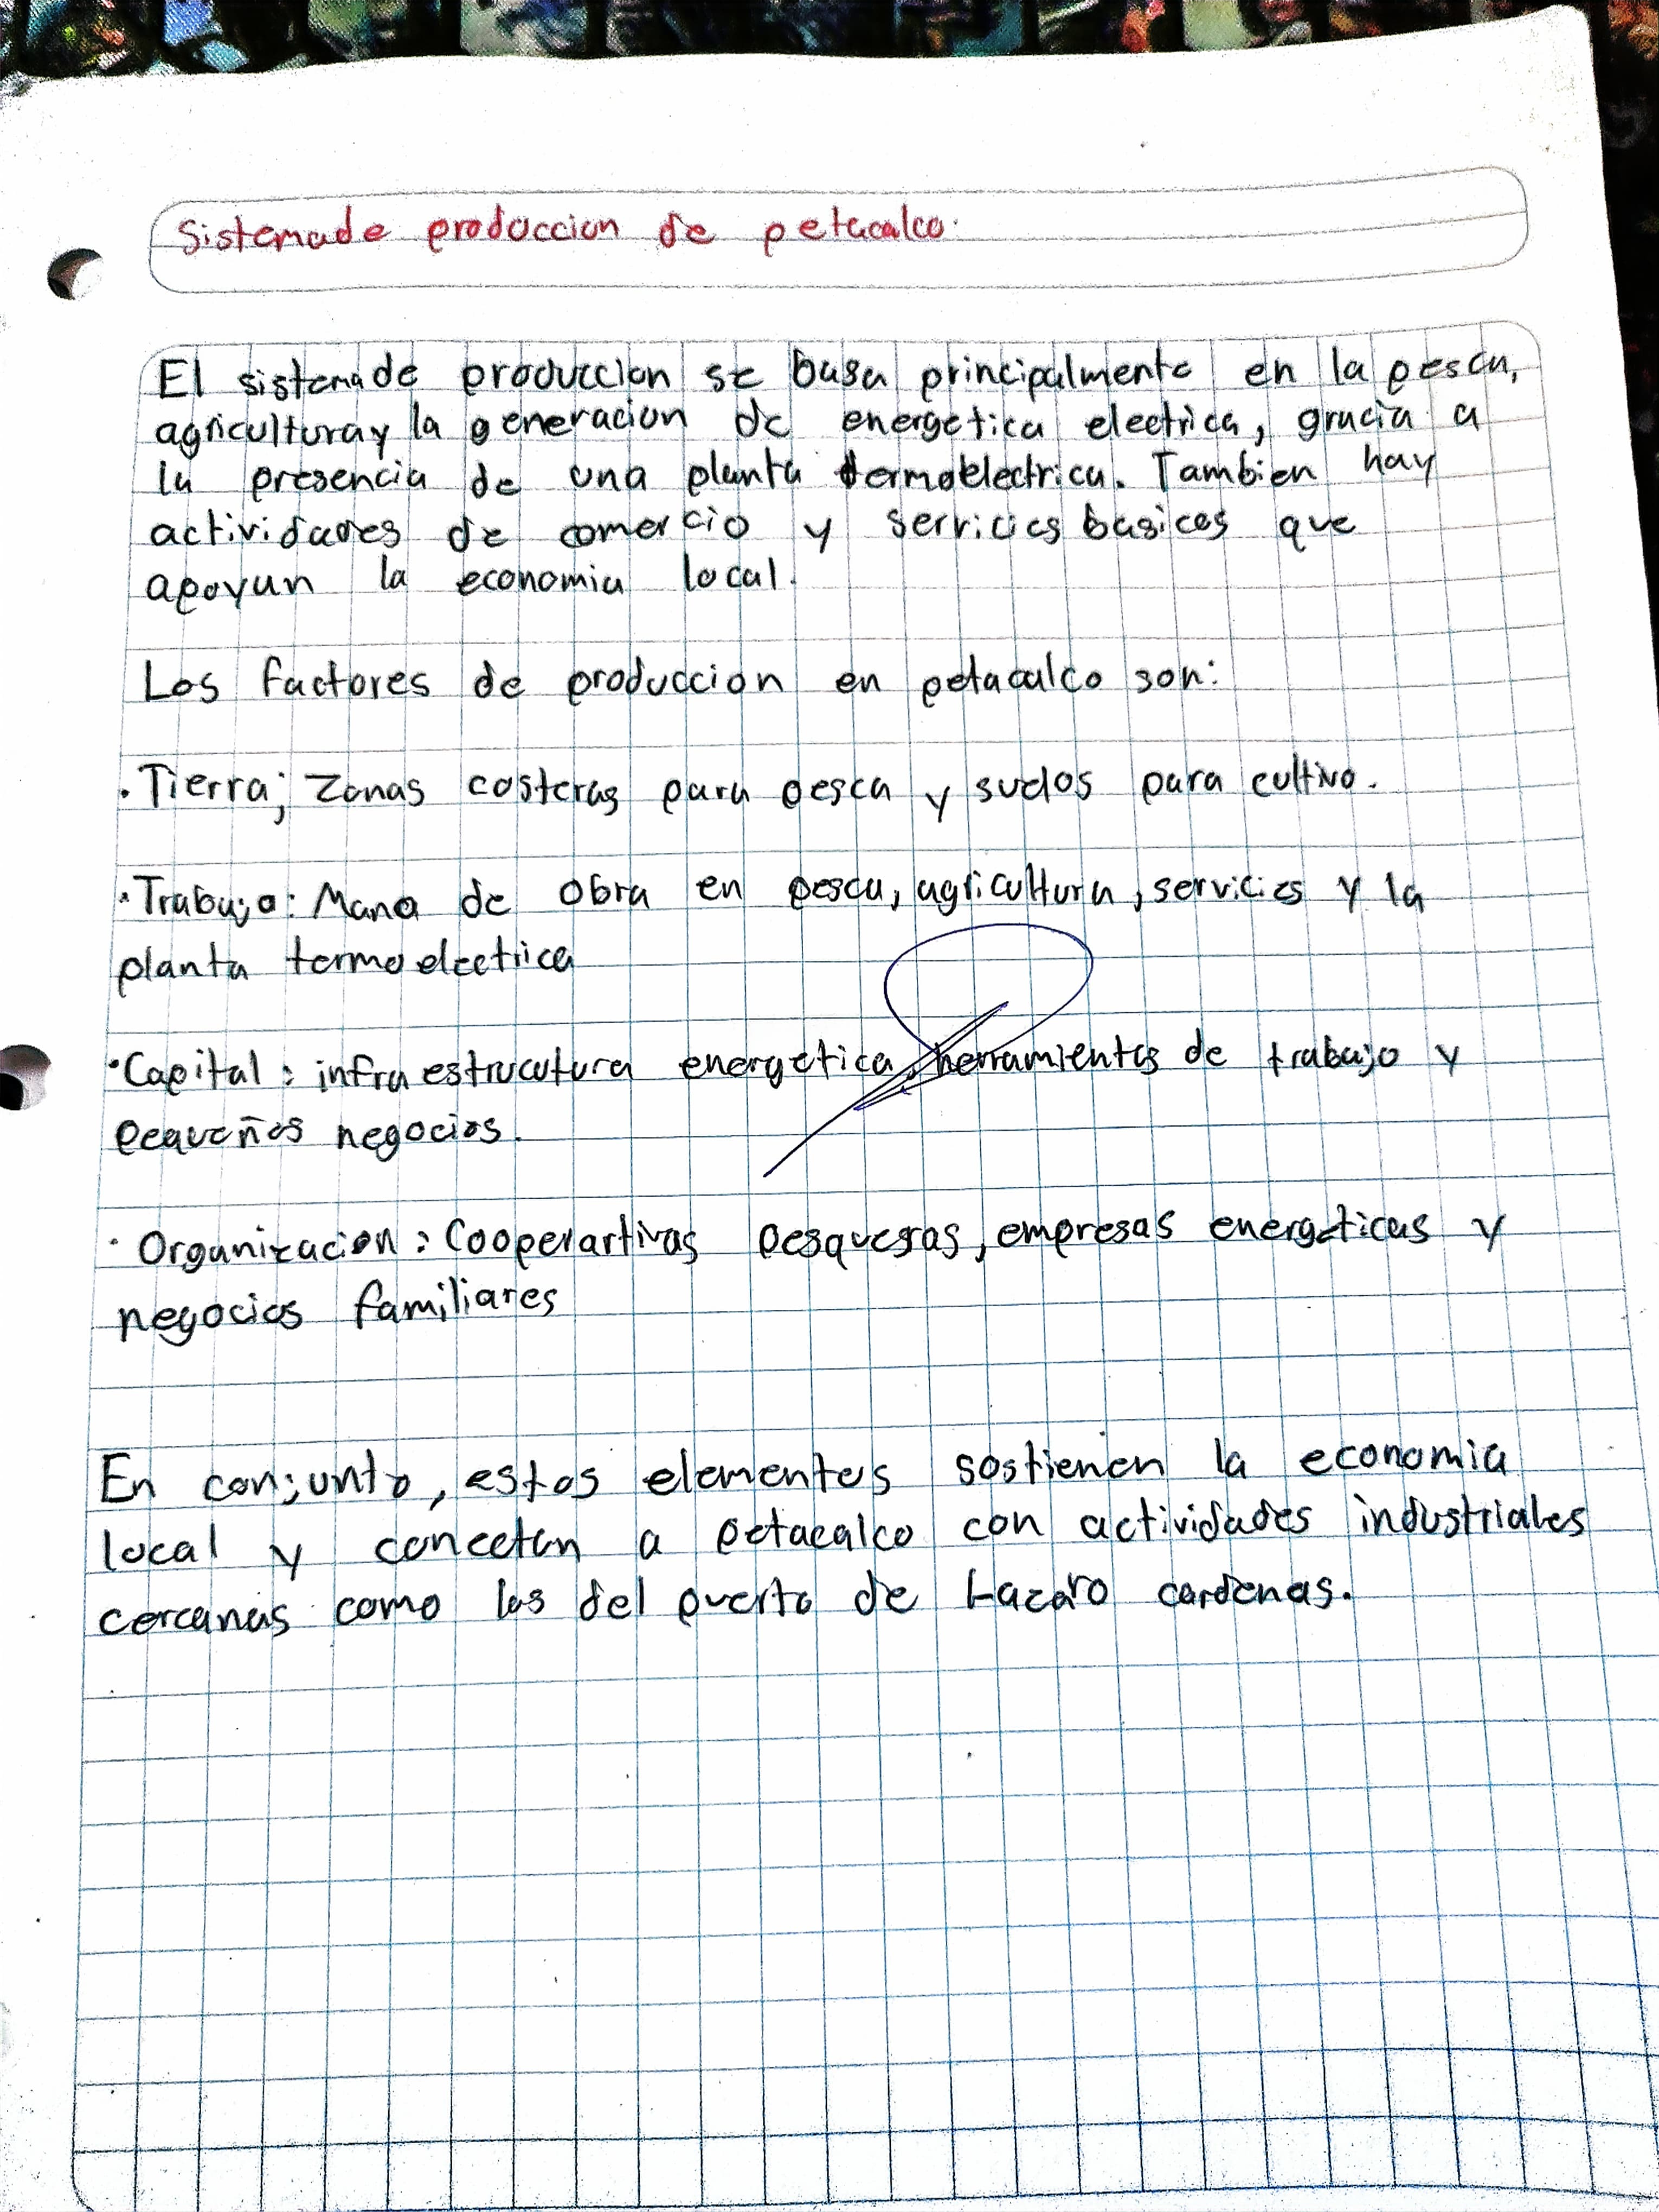 Sistemade produccion de petacalco.
El sistemade produccion se basa principalmente en la pesca,
agriculturay la generacion de energetica electrica, gracia a
la presencia de una planta termoelectrica. Tambien hay
actividades de comercio y servicios basicos que
apoyan la economia local.
Los factores de produccion en petacalco son:
• Tierra; Zonas costeras para pesca y suelos para cultivo.
• Trabajo: Mano de obra en pesca, agricultura, servicios y la
planta termoelectrica
• Capital: infraestrucutura energetica, herramientas de trabajo y
pequeños negocios.
• Organizacion: Cooperartivas pesqueras, empresas energeticas y
negocios familiares
En conjunto, estos elementos sostienen la economia
local y conectan a petacalco con actividades industriales
cercanas como las del puerto de Lazaro cardenas.